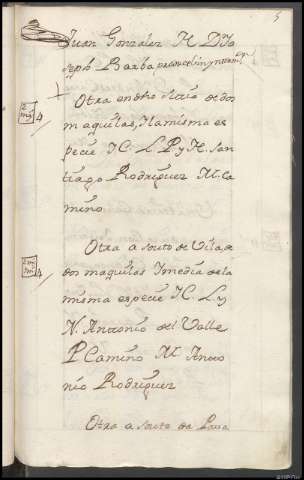 5
Juan Gonzalez N. Dⁿ Jo
seph Barba
Otra en dho sitio de dos
maquilas, Ylamisma es
pecie L. P. y N. San
tiago Rodriguez M. Ca
mino
4
Otra a souto de Vila de
dos maquilas Ymedia dela
misma especie L. y
N. Antonio del Valle
P. Camino M. Anto
nio Rodriguez
4
Otra a souto da